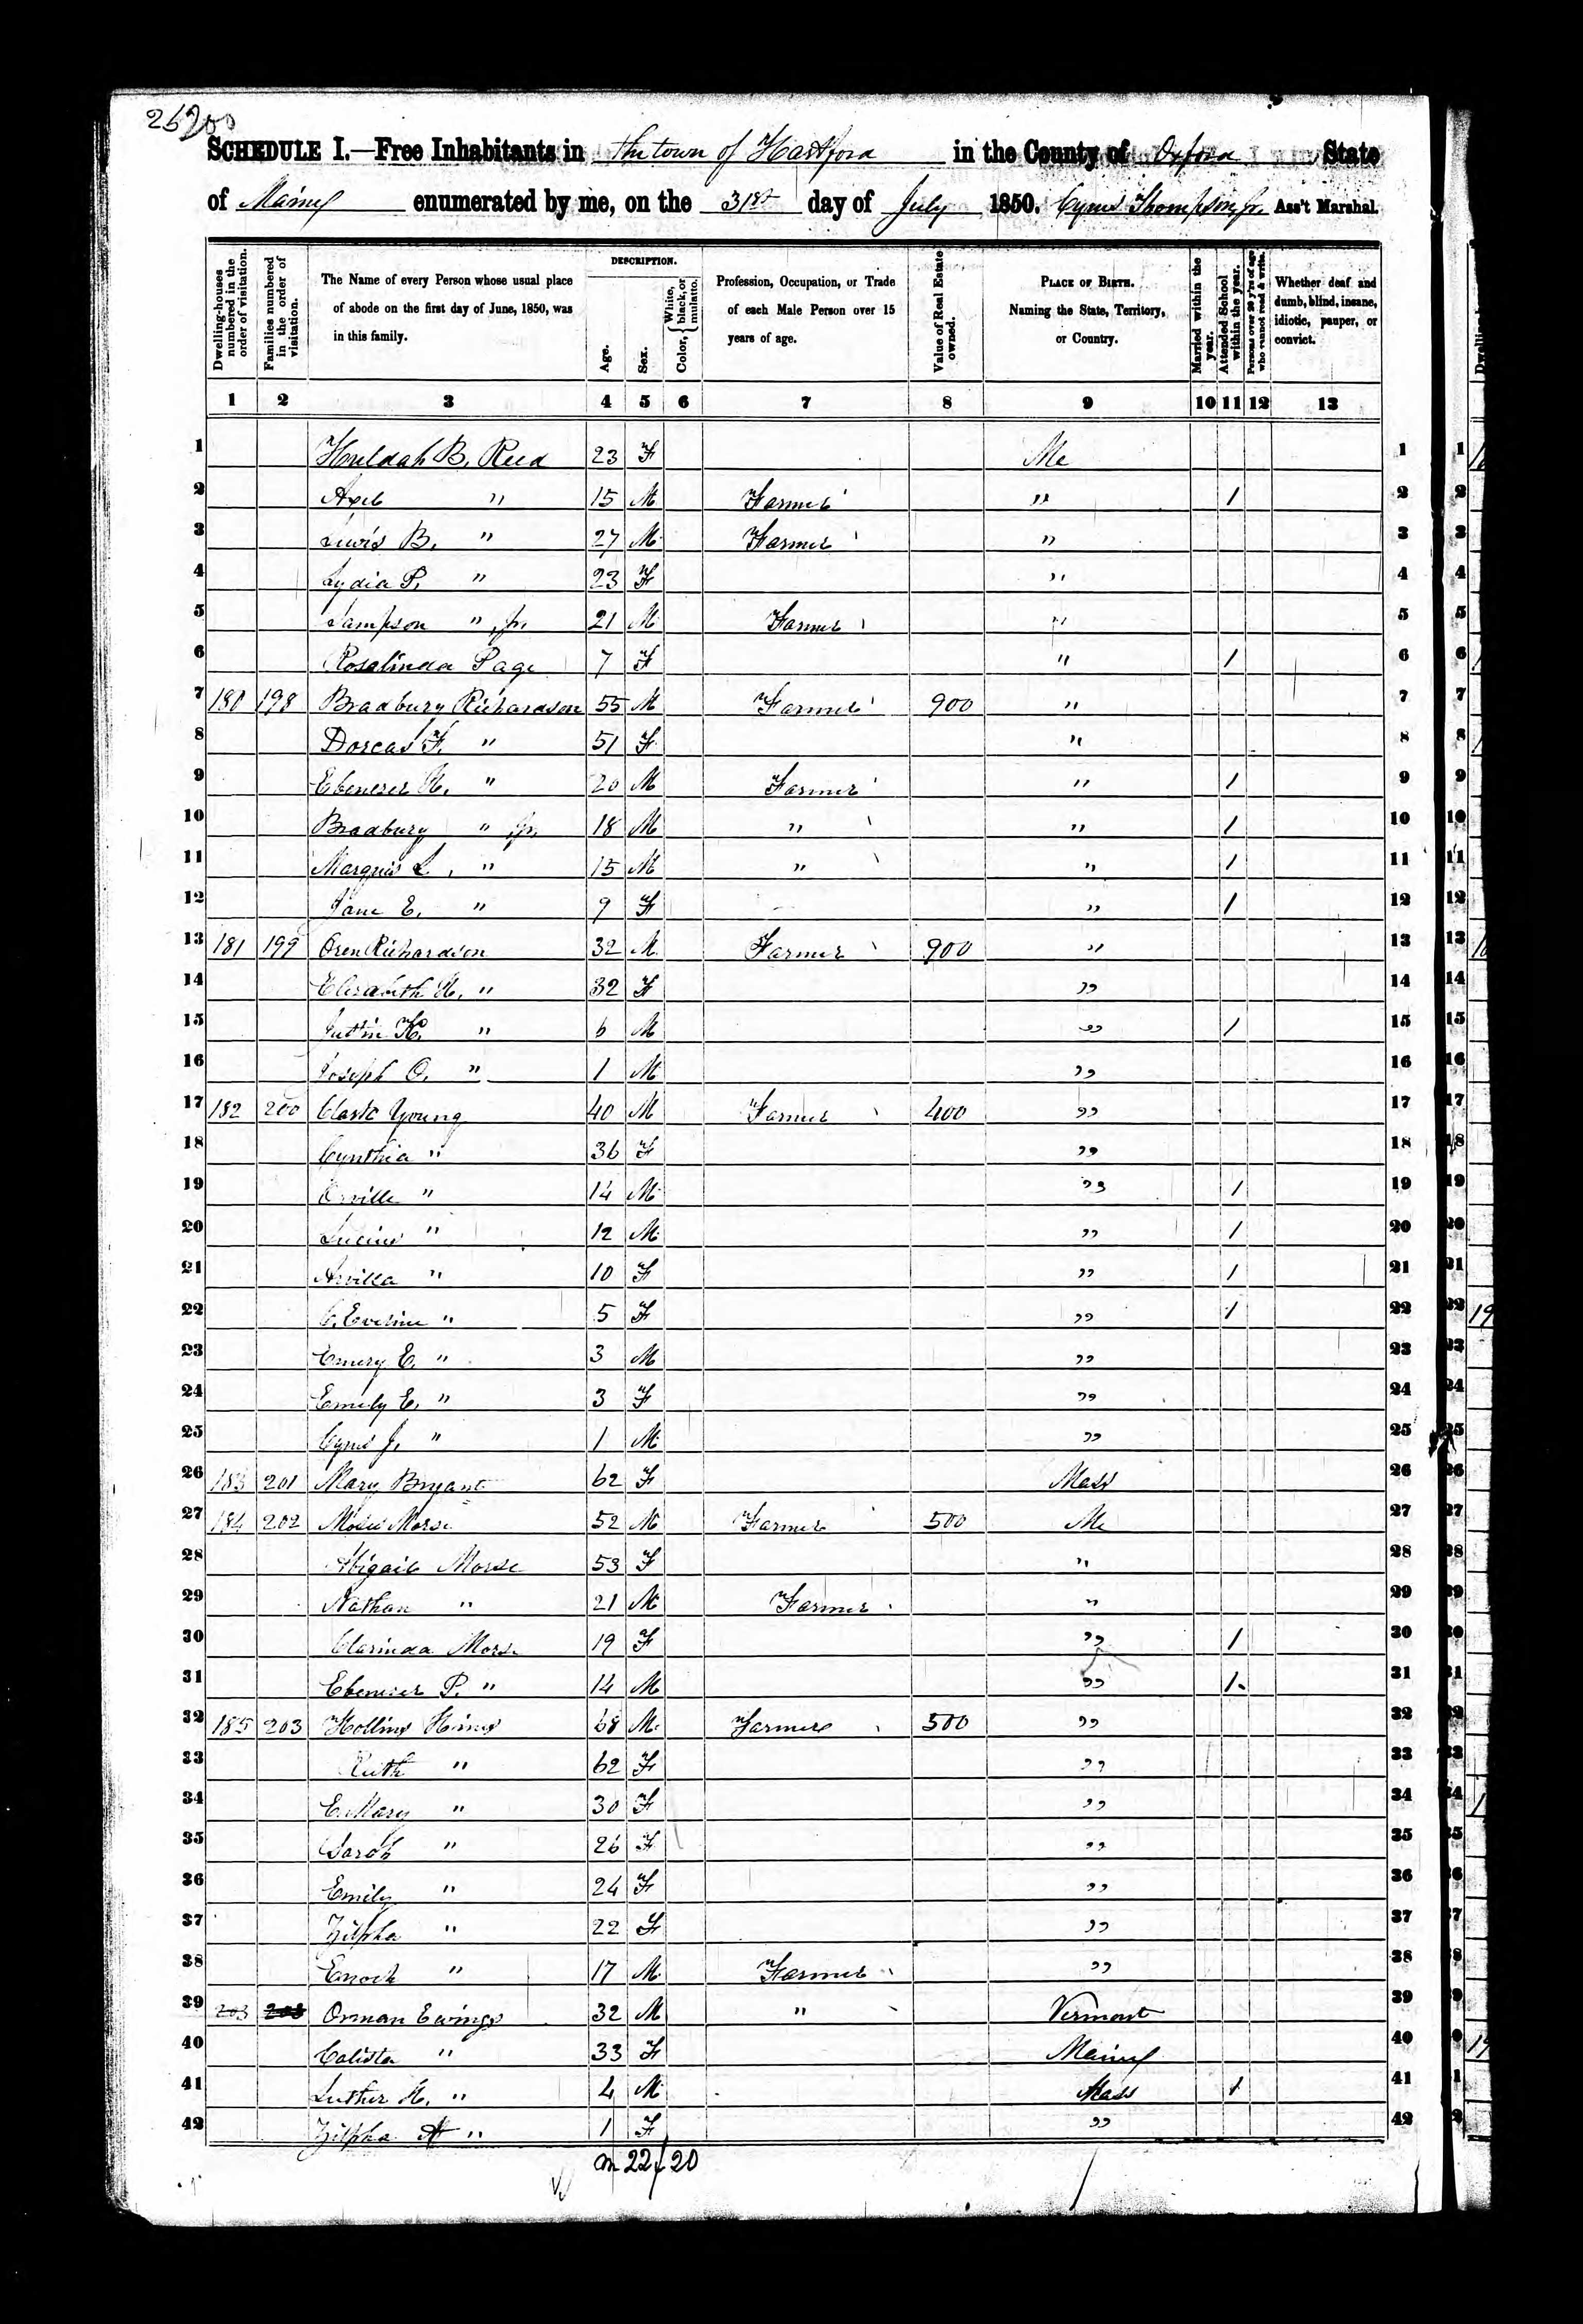 26200
SCHEDULE I.—Free Inhabitants in the town of Hartford in the County of Oxford State
of Maine enumerated by me, on the 31st day of July 1850. Cyrus Thompson, Jr. Ass't Marshal.
Dwelling-houses numbered in the order of visitation.
Families numbered in the order of visitation.
The Name of every Person whose usual place of abode on the first day of June, 1850, was in this family.
DESCRIPTION.
Age.
Sex.
Color, { White, black, or mulatto.
Profession, Occupation, or Trade of each Male Person over 15 years of age.
Value of Real Estate owned.
PLACE OF BIRTH. Naming the State, Territory, or Country.
Married within the year.
Attended School within the year.
Persons over 20 y'rs of age who cannot read & write.
Whether deaf and dumb, blind, insane, idiotic, pauper, or convict.
1 2 3 4 5 6 7 8 9 10 11 12 13
1 Huldah B. Reed 23 F Me 1
2 Axel " 15 M Farmer " 1 2
3 Lewis B. " 27 M Farmer " 3
4 Lydia P. " 23 F " 4
5 Sampson " Jr. 21 M Farmer " 5
6 Rosalinda Page 7 F " 1 6
7 180 198 Bradbury Richardson 55 M Farmer 900 " 7
8 Dorcas F. " 51 F " 8
9 Ebenezer H. " 20 M Farmer " 1 9
10 Bradbury " Jr. 18 M " " 1 10
11 Marquis L. " 15 M " " 1 11
12 Jane E. " 9 F " 1 12
13 181 199 Oren Richardson 32 M Farmer 900 " 13
14 Elizabeth H. " 32 F " 14
15 Justin K. " 6 M " 1 15
16 Joseph O. " 1 M " 16
17 182 200 Clark Young 40 M Farmer 400 " 17
18 Cynthia " 36 F " 18
19 Orville " 14 M " 1 19
20 Lucius " 12 M " 1 20
21 Arvilla " 10 F " 1 21
22 C. Eveline " 5 F " 1 22
23 Emery E. " 3 M " 23
24 Emily E. " 3 F " 24
25 Cyrus J. " 1 M " 25
26 183 201 Mary Bryant 62 F Mass 26
27 184 202 Moses Morse 52 M Farmer 500 Me 27
28 Abigail Morse 53 F " 28
29 Nathan " 21 M Farmer " 29
30 Clarinda Morse 19 F " 1 30
31 Ebenezer P. " 14 M " 1 31
32 185 203 Hollins Hines 68 M Farmer 500 " 32
33 Ruth " 62 F " 33
34 E. Mary " 30 F " 34
35 Sarah " 26 F " 35
36 Emily " 24 F " 36
37 Zilpha " 22 F " 37
38 Enoch " 17 M Farmer " 38
39 203 Orman Ewings 32 M " Vermont 39
40 Calista " 33 F Maine 40
41 Luther H. " 4 M Mass 1 41
42 Zilpha A " 1 F " 42
m 22 f 20